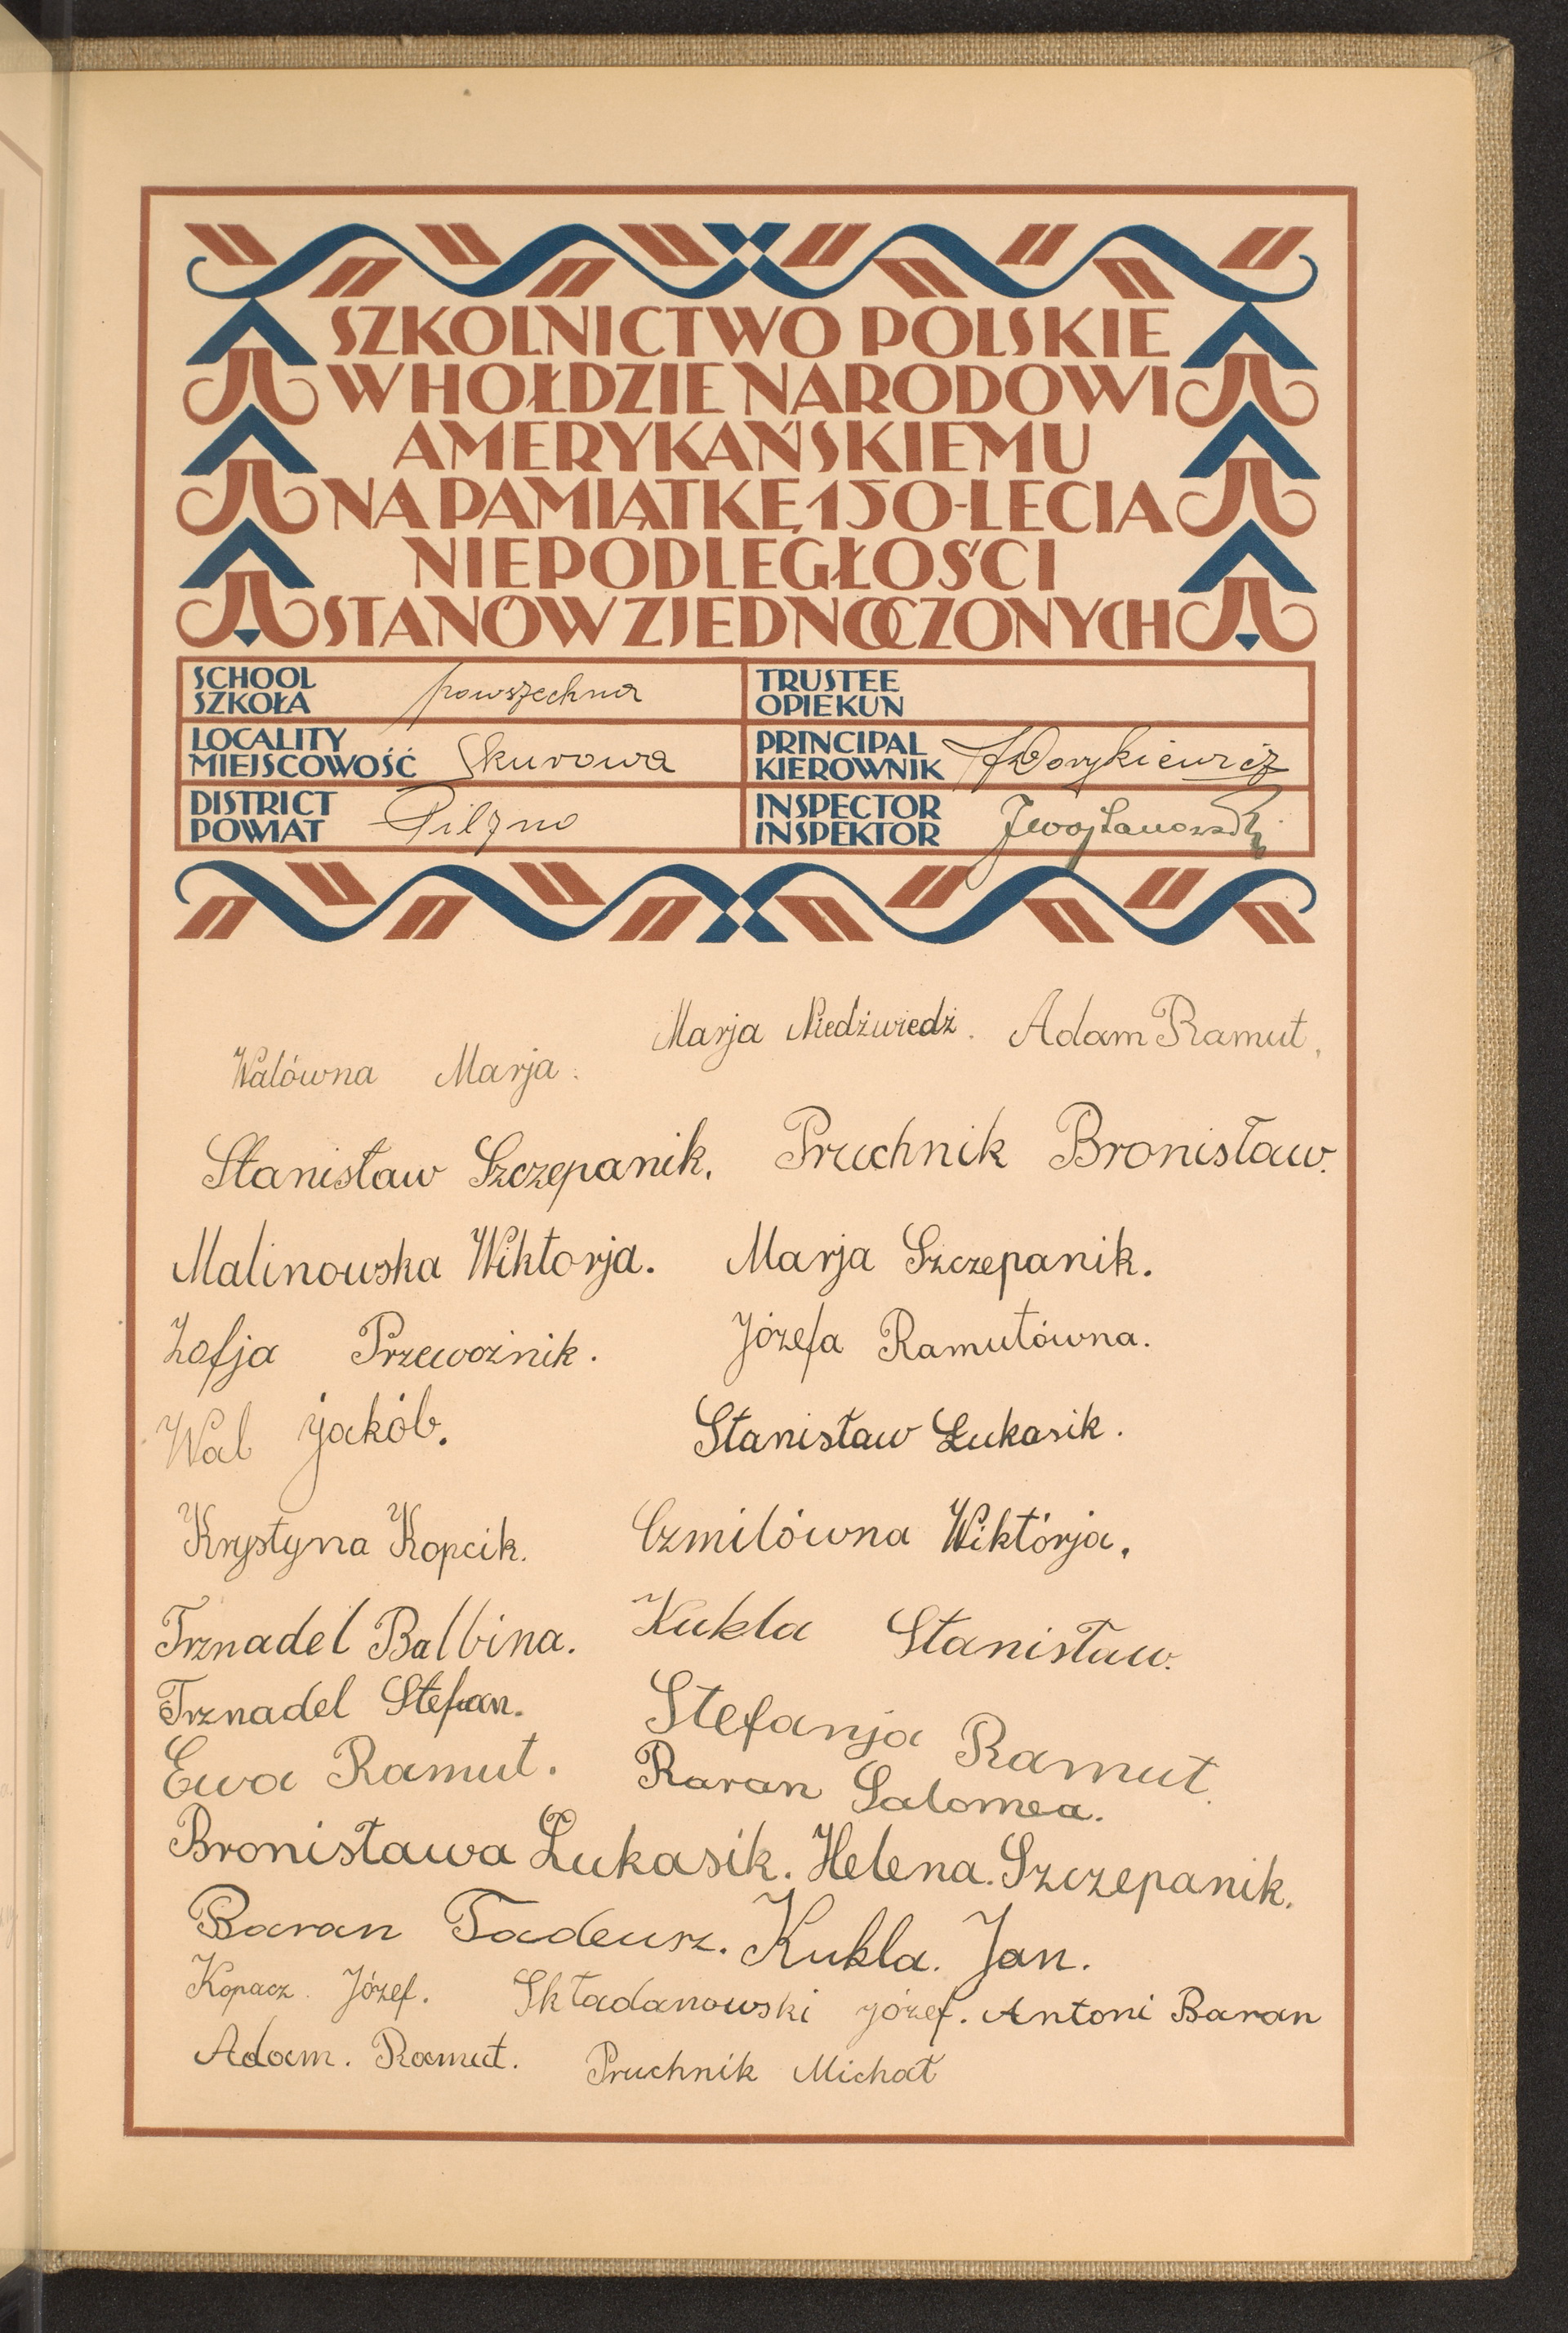 SZKOLNICTWO POLSKIE
W HOŁDZIE NARODOWI
AMERYKAŃSKIEMU
NA PAMIĄTKĘ 150-LECIA
NIEPODLEGŁOŚCI
STANÓW ZJEDNOCZONYCH
SCHOOL
SZKOŁA powszechna
TRUSTEE
OPIEKUN
LOCALITY
MIEJSCOWOŚĆ Skurowa
PRINCIPAL
KIEROWNIK
DISTRICT
POWIAT Pilzno
INSPECTOR
INSPEKTOR
Marja Niedźwiedź. Adam Ramut.
Walówna Marja.
Stanisław Szczepanik. Pruchnik Bronisław.
Malinowska Wiktorja. Marja Szczepanik.
Zofja Przewoźnik. Józefa Ramutówna.
Wal Jakób. Stanisław Łukasik.
Krystyna Kopcik. Czmilówna Wiktórja.
Trznadel Balbina. Kukla Stanisław.
Trznadel Stefan. Stefanja Ramut.
Ewa Ramut. Baran Salomea.
Bronisława Łukasik. Helena. Szczepanik.
Baran Tadeusz. Kukla. Jan.
Kopacz. Józef. Składanowski Józef. Antoni Baran
Adam. Ramut. Pruchnik Michał